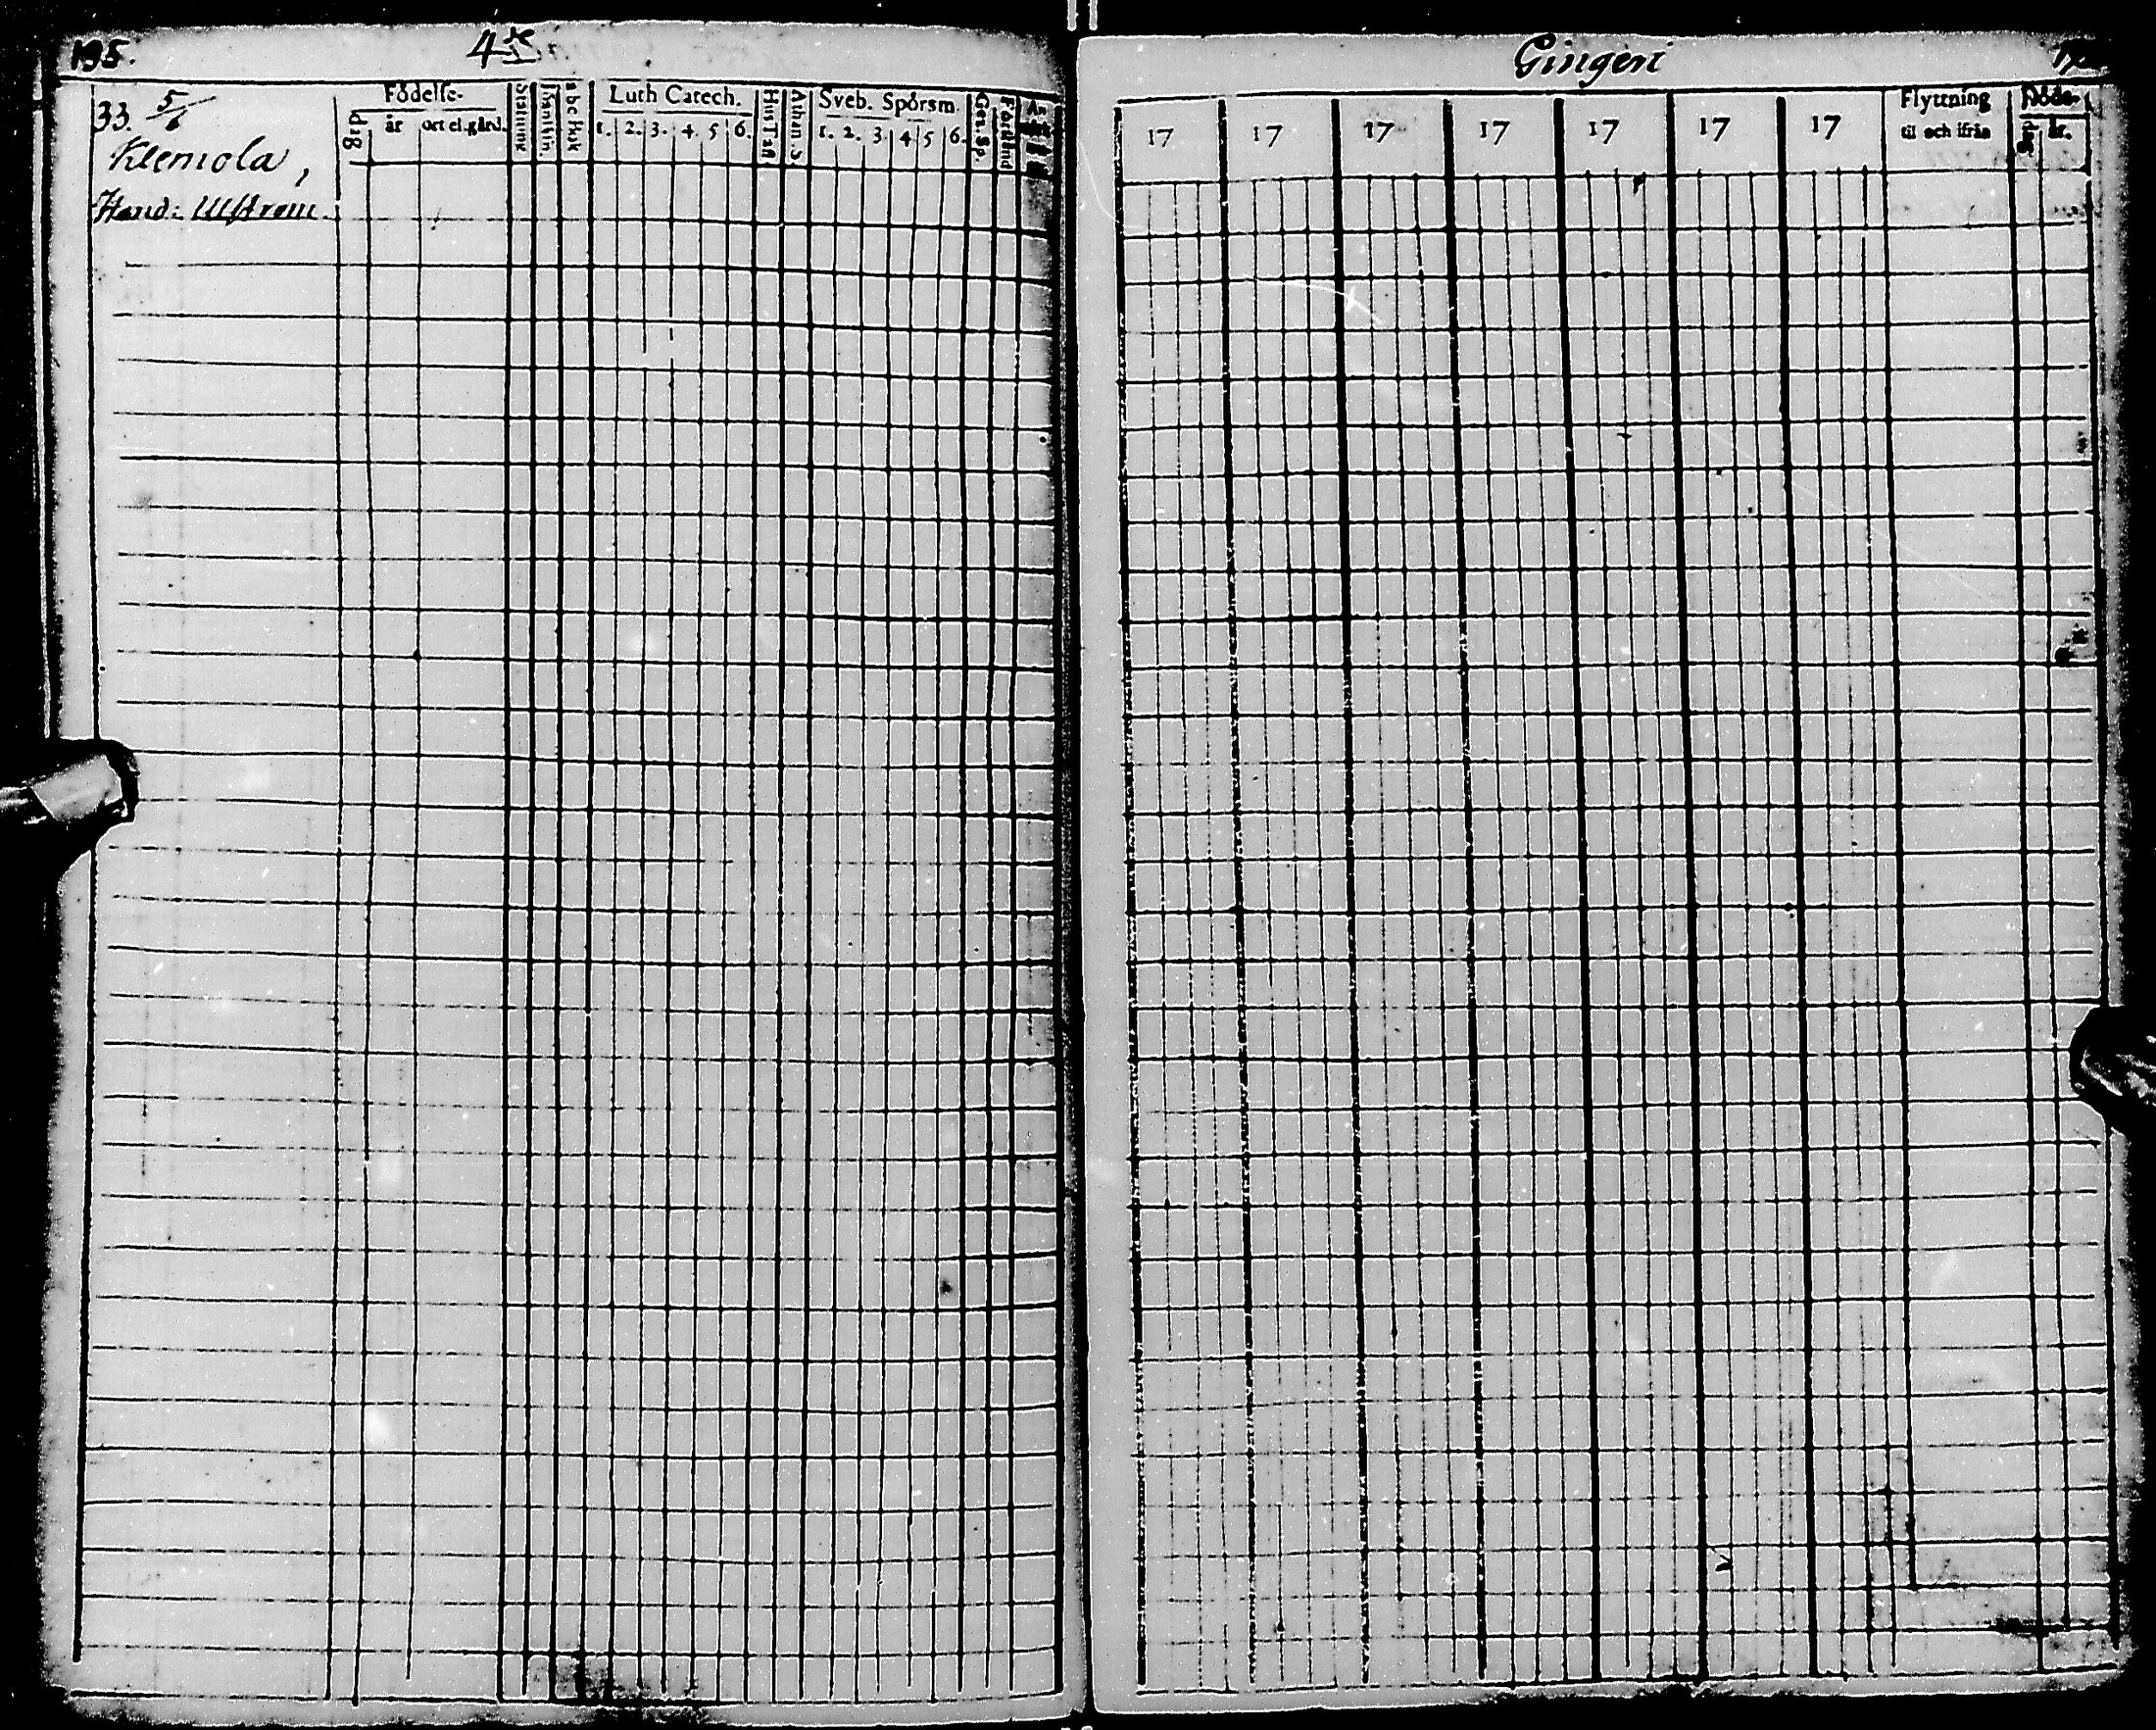 195.
4de
33. 5/6
Klemola,
Hand: Ulström.
Födelse-
dag
år
ort el. gård.
abc Bok
Luth Catech.
1. 2. 3. 4. 5 6.
Hus Tafl
Athan. S
Sveb. Spörsm.
1. 2. 3 4 5 6.
Gen. Sp.
Förstånd
Gingeri
17 17 17 17 17 17 17
Flyttning
til och ifrån
Döds-
år.